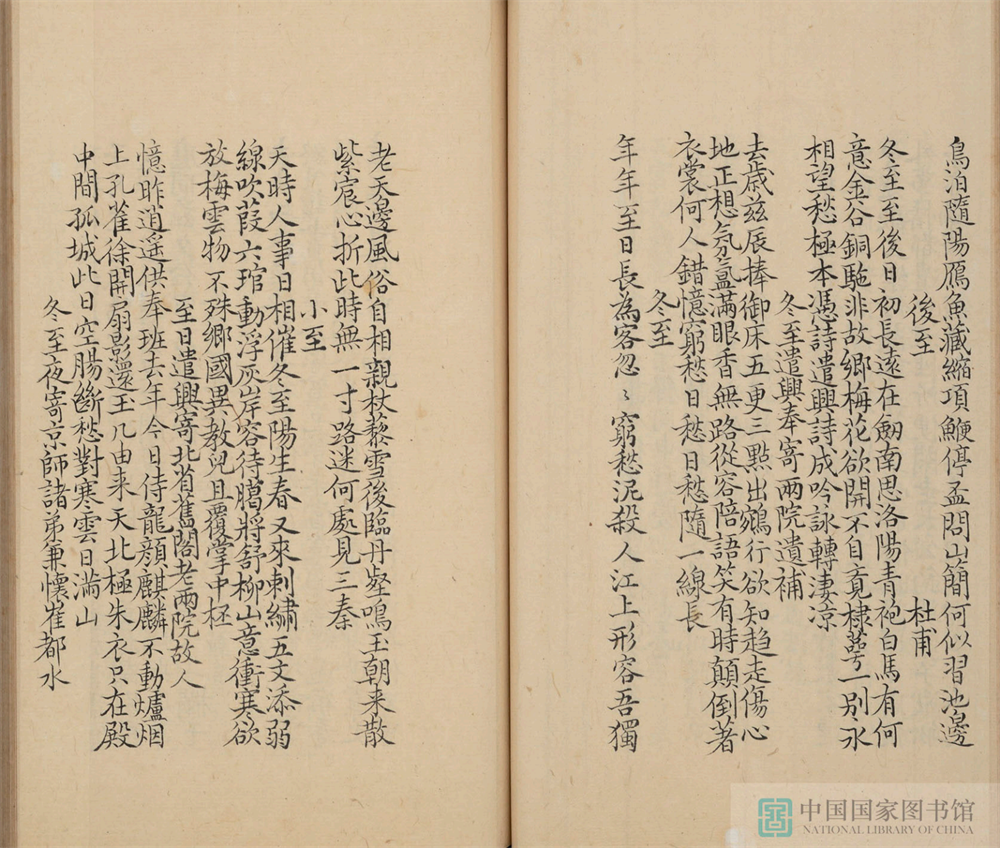 鳥泊隨陽鴈魚藏縮項鯿停盃問山簡何似習池邊
後至 杜甫
冬至至後日初長遠在劒南思洛陽青袍白馬有何
意金谷銅馳非故鄉梅花欲開不自覔棣蕚一別永
相望愁極本憑詩遣興詩成吟詠轉淒凉
冬至遣興奉寄兩院遺補
去歲兹辰捧御床五更三點出鵷行欲知趋走傷心
地正想氛氳滿眼香無路從容陪語笑有時顛倒著
衣裳何人錯憶窮愁日愁日愁隨一線長
冬至
年年至日長為客忽〻窮愁泥殺人江上形容吾獨
老天邊風俗自相親杖藜雪後臨丹壑鳴玉朝来散
紫宸心折此時無一寸路迷何處見三秦
小至
天時人事日相催冬至陽生春又來刺繡五文添弱
線吹葭六琯動浮灰岸容待臈將舒柳山意衝寒欲
放梅雲物不殊鄉國異教兒且覆掌中柸
至日遣興寄北省舊閣老兩院故人
憶昨逍遥供奉班去年今日侍龍顏麒麟不動爐烟
上孔雀徐開扇影還玉几由来天北極朱衣只在殿
中間孤城此日空腸斷愁對寒雲日滿山
冬至夜寄京師諸弟兼懷崔都水
中国国家图书馆
NATIONAL LIBRARY OF CHINA